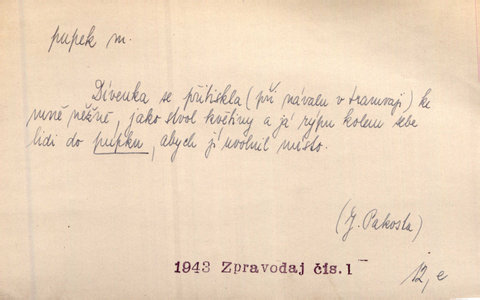 pupek m.
Dívenka se přitiskla (při návalu v tramvaji) ke
mně něžně, jako stvol květiny a já rýpu kolem sebe
lidi do pupku, abych jí uvolnil místo.
(J. Pakosta)
1943 Zpravodaj čís.1
12, e